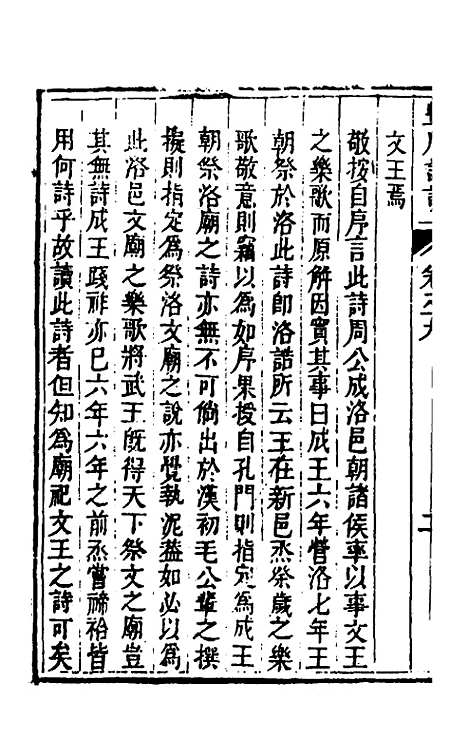 卷之九
文王焉
敬按自序言此詩周公成洛邑朝諸侯率以事文王
之樂歌而原解因實其事曰成王六年營洛七年王
朝祭於洛此詩即洛誥所云王在新邑烝祭歲之樂
歌敬意則竊以為如序果授自孔門則指定為成王
朝祭洛廟之詩亦無不可倘出於漢初毛公輩之撰
擬則指定為祭洛文廟之說亦覺執泥葢如必以為
此洛邑文廟之樂歌將武王旣得天下祭文之廟豈
其無詩成王踐祚亦已六年六年之前烝嘗禘祫皆
用何詩乎故讀此詩者但知為廟祀文王之詩可矣